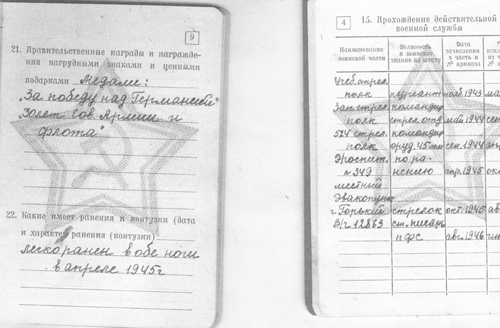 9
21. Правительственные награды и награжде-
ния нагрудными знаками и ценными
подарками Медали:
„За победу над Германией"
„30 лет Сов. Армии и
флота"
22. Какие имеет ранения и контузии (дата
и характер ранения (контузии)
легко ранен в обе ноги
в апреле 1945г
4
15. Прохождение действительной
военной службы
Наименование
воинской части
Должность
и воинское
звание по штату
Дата
зачисления
в часть и
№ приказа
Учеб. стрел.
полк курсант ноя. 1943 ма
Зап. стрел. командир
полк стрел. отд. май 1944 сен
524 стрел. командир
полк оруд. 45мм сен. 1944
Эгоспит. по ра-
№ 349 нению апр. 1945 ок
местный
Эвакопункт
г. Горький стрелок окт. 1945 ав
В/ч 12863 ст. писарь
авг. 1946